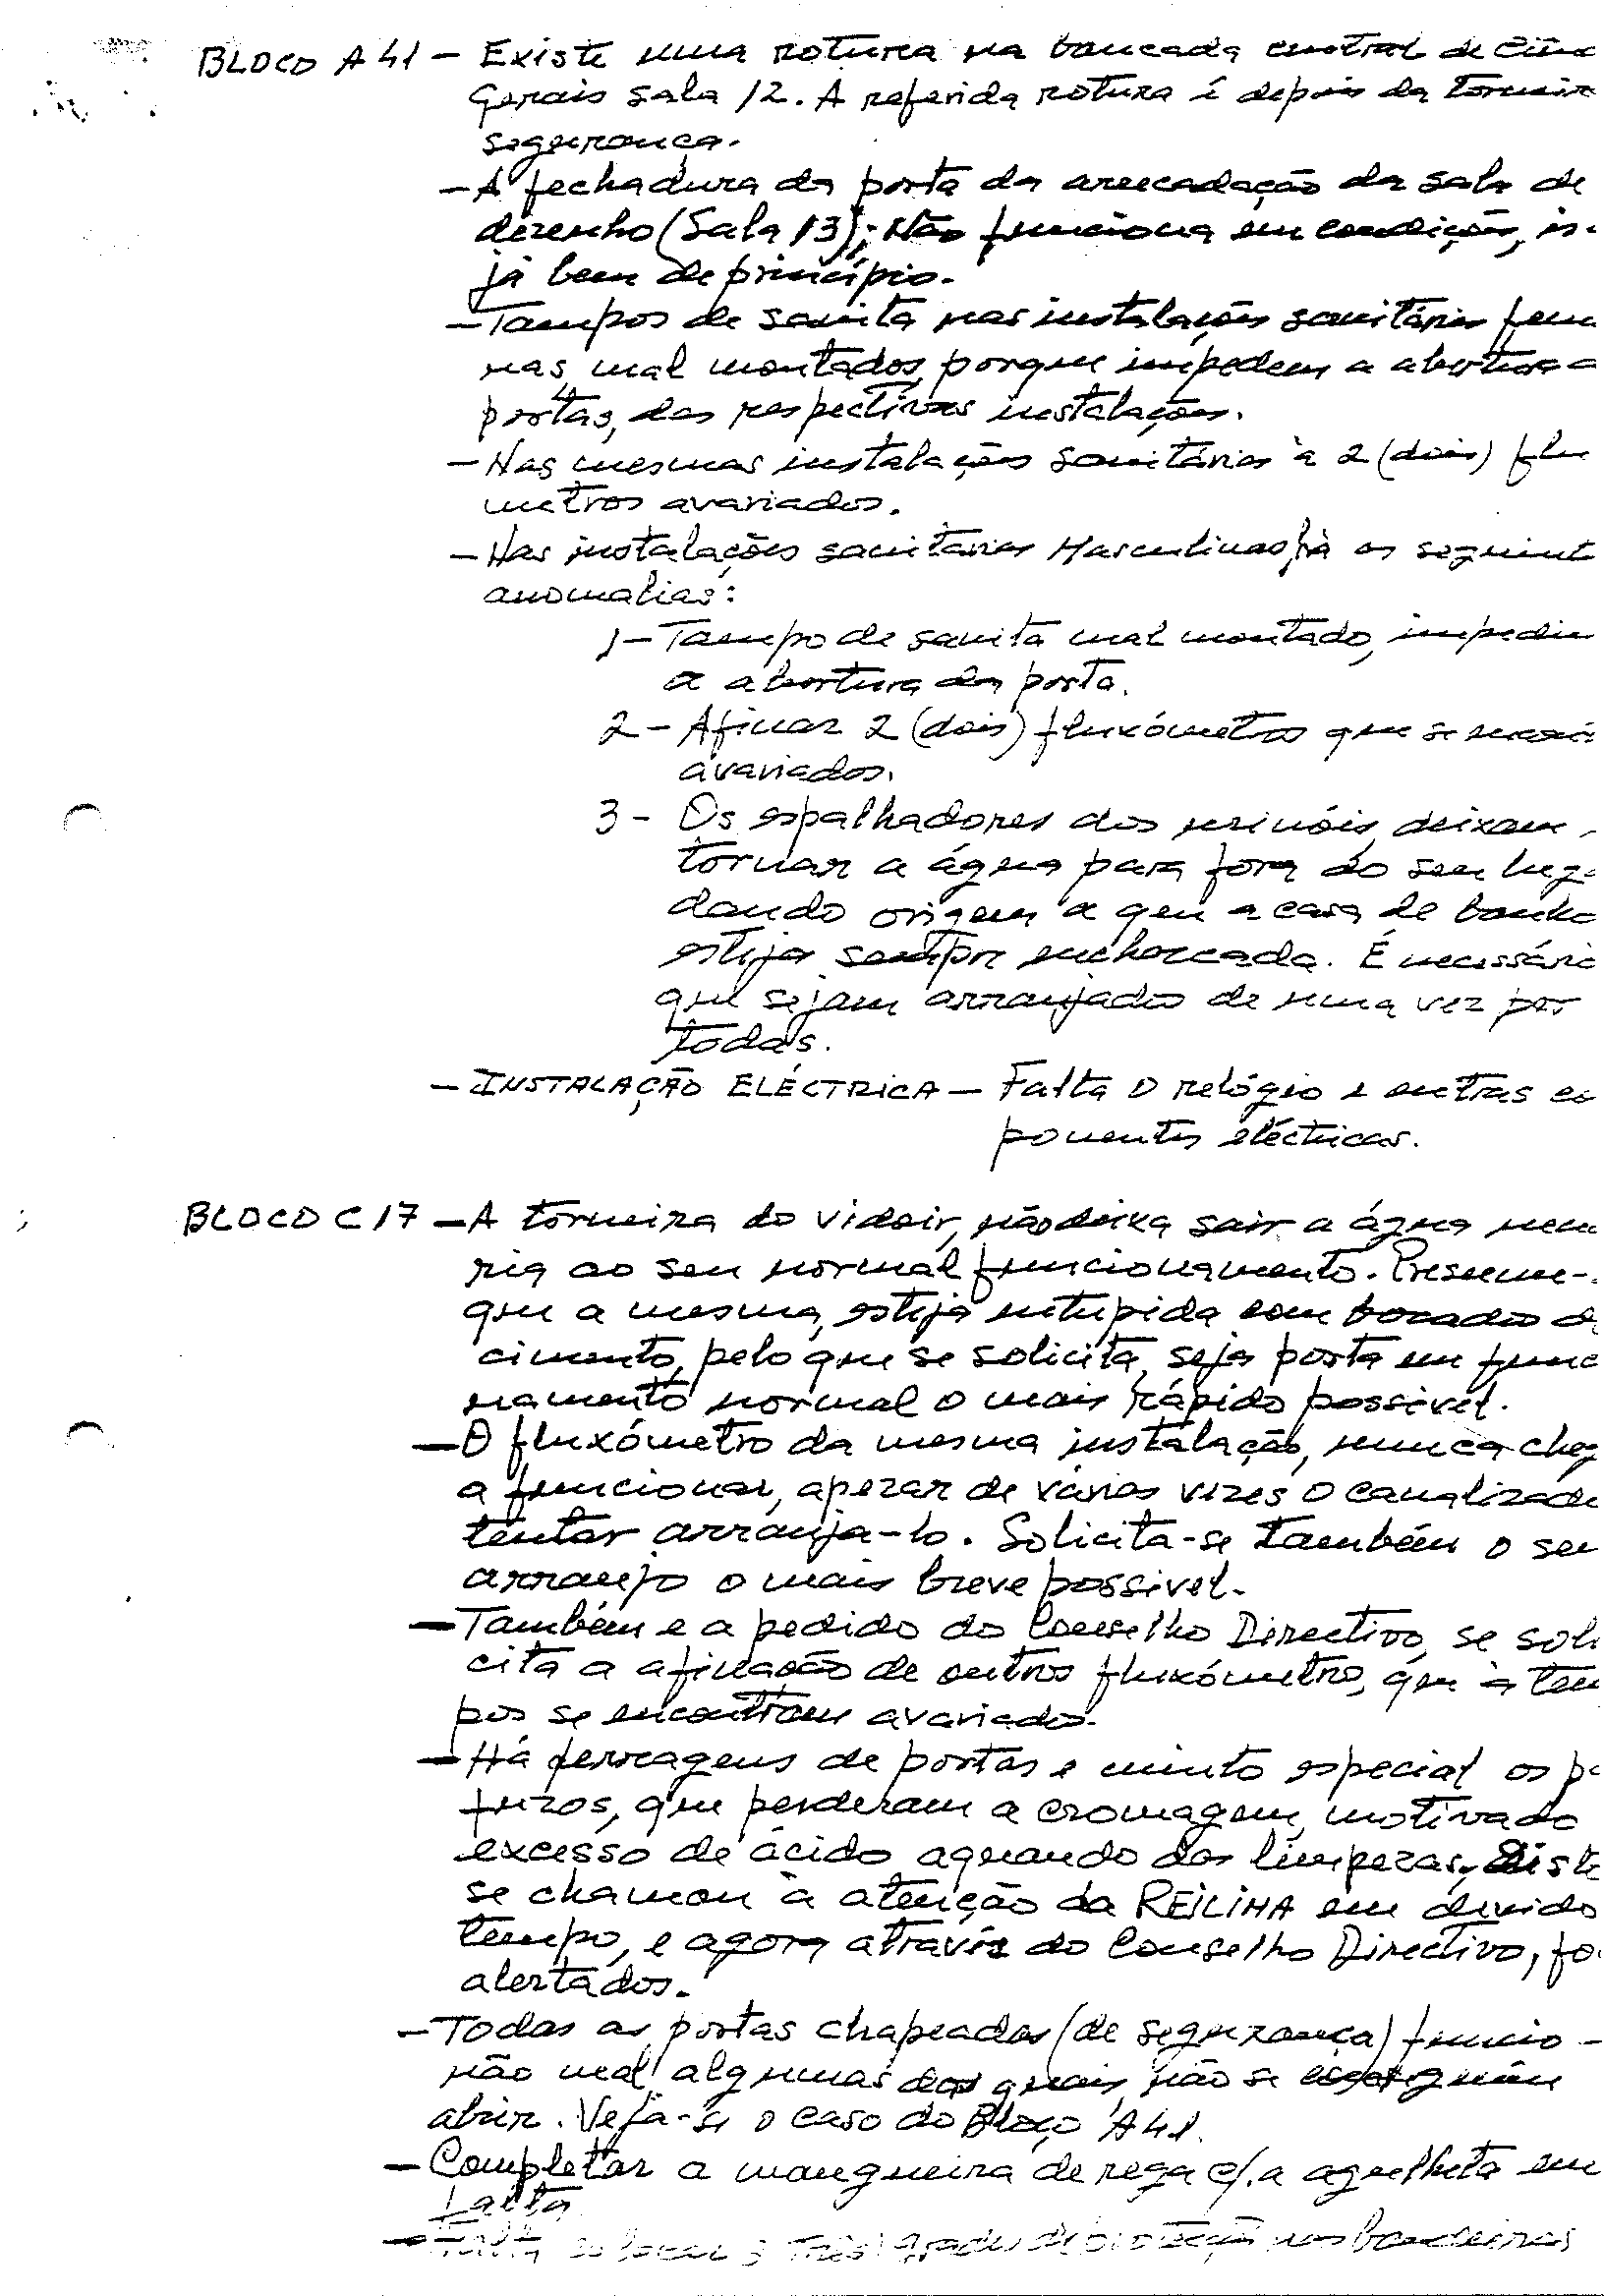 BLOCO A41 — Existe uma rotura na bancada central de Ciên
Gerais sala 12. A referida rotura é depois da torneir
segurança.
— A fechadura da porta da arrecadação da sala de
dezenho (Sala 13); Não funciona em condições,
já bem de princípio.
— Tampos de sanita nas instalações sanitárias femi
nas, mal montados, porque impedem a abertura
portas, das respectivas instalações.
— Nas mesmas instalações sanitárias à 2 (dois) flu
metros avariados.
— Nas instalações sanitárias Masculinas, há as seguint
anomalias:
1 — Tampo de sanita mal montado, impedin
a abertura da porta.
2 — Afinar 2 (dois) fluxómetros que se
avariados.
3 - Os espalhadores dos urinóis, deixam
tornar a água para fora do seu luga
dando origem a que a casa de banho
esteja sempre encharcada. É necessário
que sejam arranjados de uma vez por
todas.
— INSTALAÇÃO ELÉCTRICA — Falta o relógio e outras co
ponentes eléctricas.
BLOCO C17 — A torneira do vidoir, não deixa sair a água nem
ria ao seu normal funcionamento. Presume-
que a mesma, esteja entupida com bocados d
cimento, pelo que se solicita, seja posta em func
namento normal o mais rápido possivel.
— O fluxómetro da mesma instalação, nunca cheg
a funcionar, apezar de várias vezes o canalizado
tentar arranja-lo. Solicita-se também o seu
arranjo o mais breve possivel.
— Também e a pedido do Conselho Directivo, se soli
cita a afinação de outros fluxómetro, que à tem
pos se encontram avariados.
— Há ferragens de portas e muito especial os pa
fuzos, que perderam a cromagem, motivado
excesso de ácido aquando das limpezas, Disto
se chamou à atenção da REILIMA em devido
tempo, e agora através do Conselho Directivo, fo
alertados.
— Todas as portas chapeadas (de segurança) funcio -
não mal, algumas das quais, não se
abrir. Veja-se o caso do Bloco A41.
— Completar a mangueira de rega c/. a agulheta em
falta
— Falta colocar 3 três grades de protecção nas bandeiras